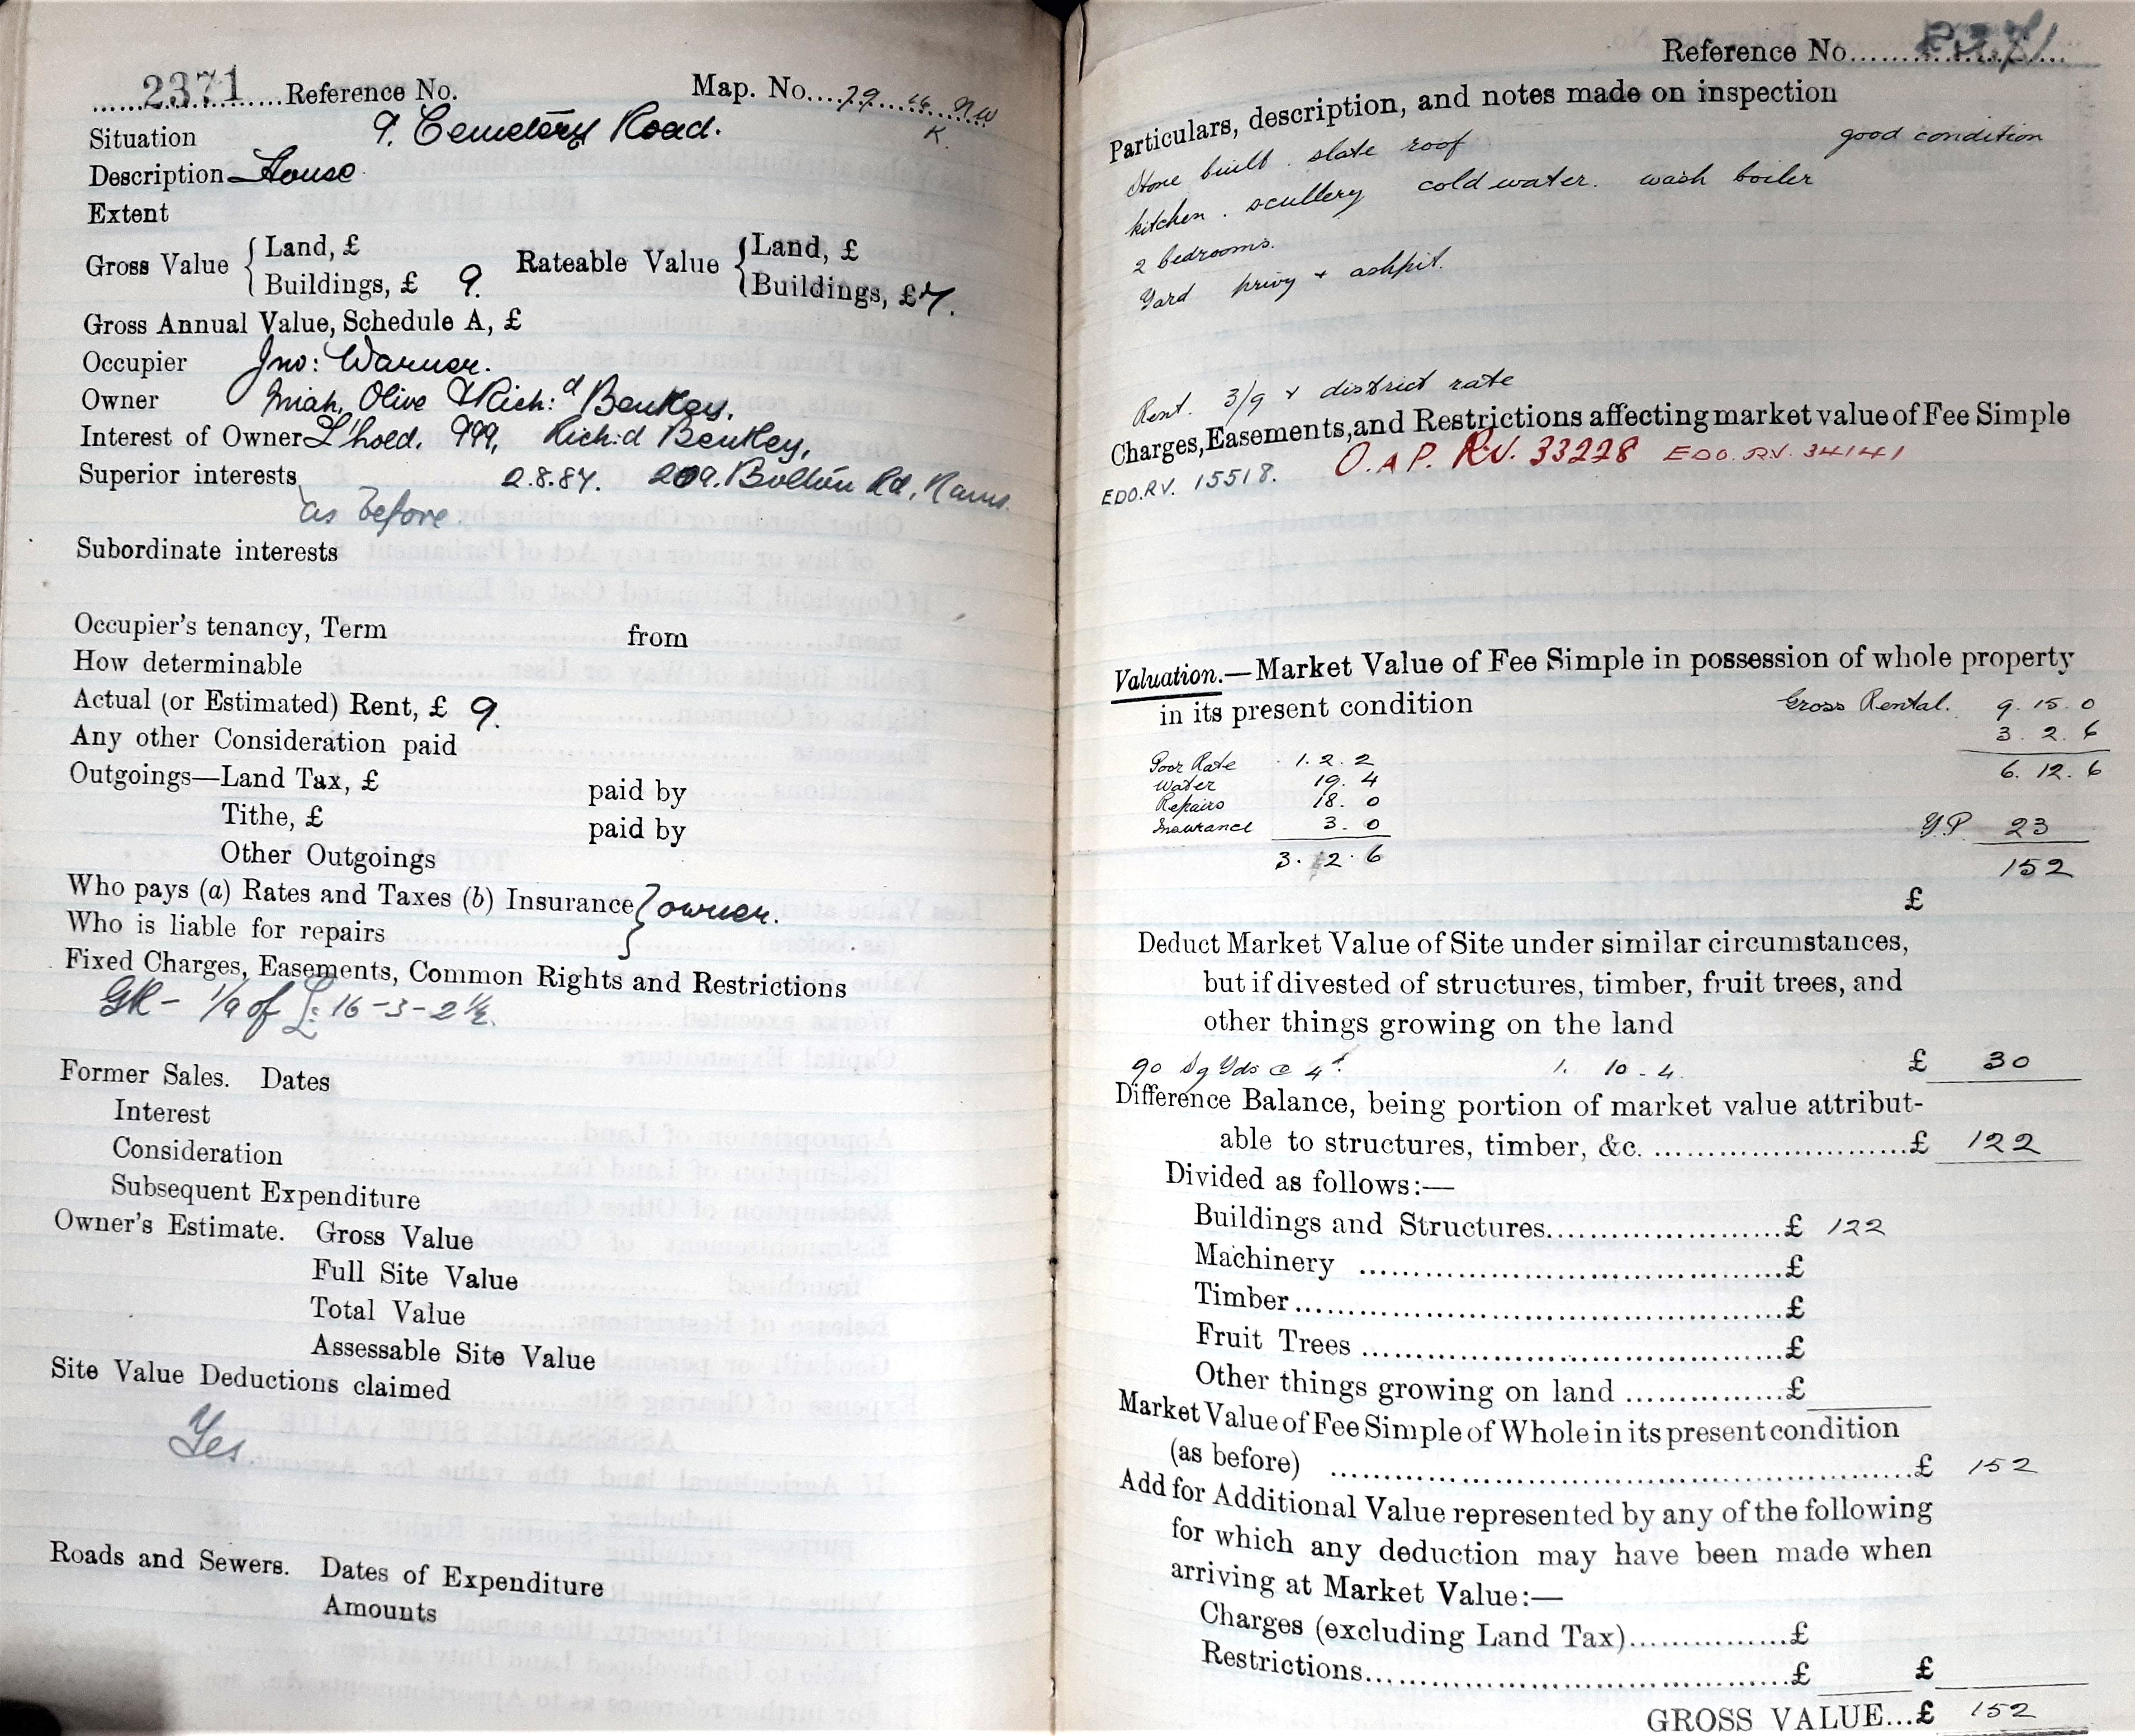 2371 Reference No. Map. No. 79 NW
K.
Situation 9. Cemetery Road.
Description House
Extent
Gross Value { Land, £
Buildings, £ 9.
Rateable Value { Land, £
Buildings, £ 7.
Gross Annual Value, Schedule A, £
Occupier Jno: Warner.
Owner Olive & Rich:d Bentley.
Interest of Owner L'hold. 999, Rich:d Bentley,
Superior interests 2.8.84. 209. Bolton Rd, Rams.
as before.
Subordinate interests
Occupier's tenancy, Term from
How determinable
Actual (or Estimated) Rent, £ 9.
Any other Consideration paid
Outgoings—Land Tax, £ paid by
Tithe, £ paid by
Other Outgoings
Who pays (a) Rates and Taxes (b) Insurance } owner.
Who is liable for repairs
Fixed Charges, Easements, Common Rights and Restrictions
GR - 1/9 of £:16-3-2½.
Former Sales. Dates
Interest
Consideration
Subsequent Expenditure
Owner's Estimate. Gross Value
Full Site Value
Total Value
Assessable Site Value
Site Value Deductions claimed
Yes.
Roads and Sewers. Dates of Expenditure
Amounts
Reference No. 2371
Particulars, description, and notes made on inspection
Stone built. slate roof good condition
kitchen. scullery cold water. wash boiler
2 bedrooms.
Yard privy + ashpit.
Rent. 3/9 + district rate
Charges, Easements, and Restrictions affecting market value of Fee Simple
EDO.RV. 15518. O.A P. RV. 33228 EDO. RV. 34141
Valuation.—Market Value of Fee Simple in possession of whole property
in its present condition Gross Rental. 9. 15. 0
3. 2. 6
Poor Rate 1. 2. 2
6. 12. 6
Water 19. 4
Repairs 18. 0
Insurance 3. 0
Y.P. 23
3. 2. 6
152
£
Deduct Market Value of Site under similar circumstances,
but if divested of structures, timber, fruit trees, and
other things growing on the land
90 Sq Yds @ 4d 1. 10 - 4. £ 30
Difference Balance, being portion of market value attribut-
able to structures, timber, &c. £ 122
Divided as follows:—
Buildings and Structures £ 122
Machinery £
Timber £
Fruit Trees £
Other things growing on land £
Market Value of Fee Simple of Whole in its present condition
(as before) £ 152
Add for Additional Value represented by any of the following
for which any deduction may have been made when
arriving at Market Value:—
Charges (excluding Land Tax) £
Restrictions £ £
GROSS VALUE...£ 152